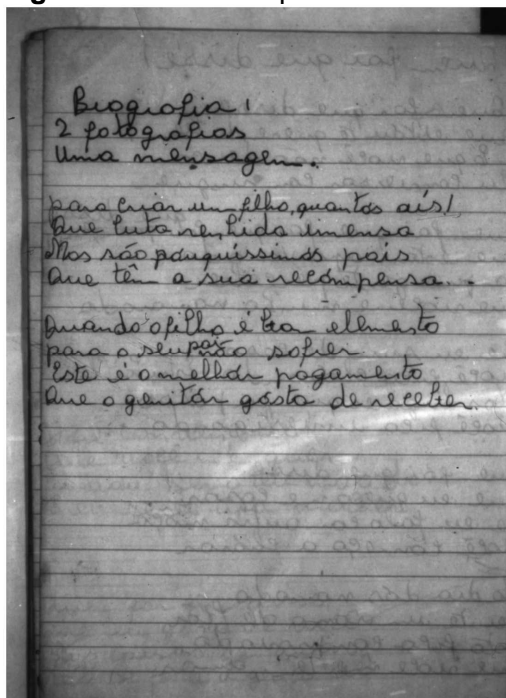 Biografia!
2 fotografias
Uma mensagem.
para criar um filho, quantos aís!
Que luta renhida imensa
Mas são pouquíssimos pais
Que têm a sua recompensa...
Quando o filho é bom elemento
para o seu pai não sofrer
Este é o melhor pagamento
Que o genitôr gósta de receber.